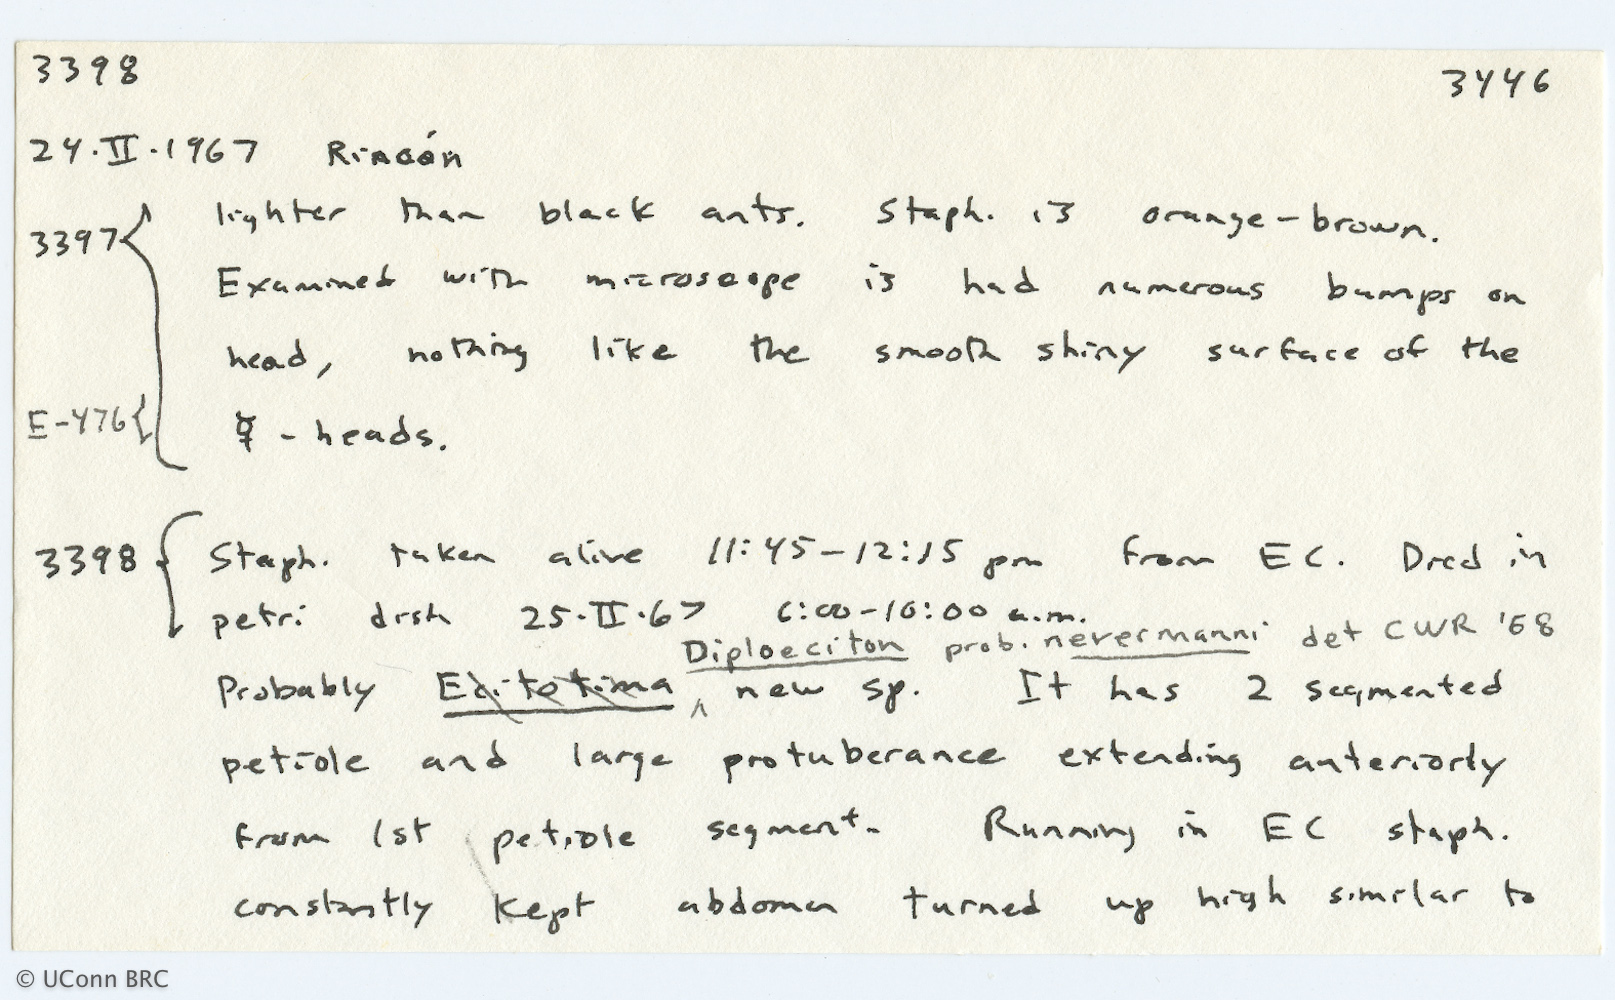 3398 3446
24·II·1967 Rincón
lighter than black ants. Staph. is orange-brown.
3397 { Examined with microscope is had numerous bumps on
head, nothing like the smooth shiny surface of the
E-476 { ☿ - heads.
3398 { Staph. taken alive 11:45-12:15 pm from EC. Died in
petri dish 25·II·67 6:00-10:00 a.m.
Diploeciton prob. nevermanni det CWR '68
Probably Ecitotima ^ new sp. It has 2 segmented
petiole and large protuberance extending anteriorly
from 1st petiole segment. Running in EC staph.
constantly kept abdomen turned up high similar to
© UConn BRC